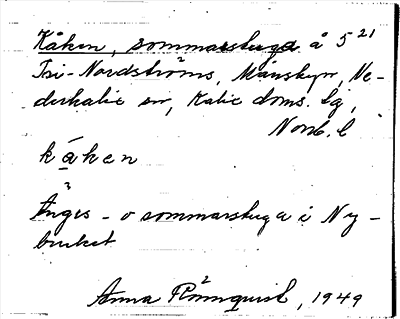 Kåken, sommarstuga å 5²¹
Fri-Nordströms, Månsbyn, Ne-
derkalix sn, Kalix doms. lg,
Norrb. l
kåken
Änges- o sommarstuga i Ny-
bruket
Anna Rönnquist, 1949